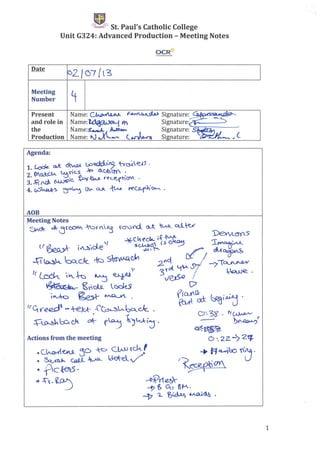 St. Paul's Catholic College
Unit G324: Advanced Production – Meeting Notes
OCR
Date
02/07/13
Meeting
Number
4
Present
and role in
the
Production
Name: Charlene Fernandes Signature:
Name: Signature:
Name: Sarah Signature:
Name: Nathan Signature:
Agenda:
1. Look at other wedding trailers.
2. Match lyrics to action.
3. Find music for the reception.
4. What's going on at the reception.
AOB
Meeting Notes
Shot of groom turning round at the alter
"Beast inside"
*Check if the school is okay with
Demons
Imagine dragons
-Flash back to stomach
"Look into my eyes"
2nd
3rd 4th
verse
→ Tanner
Have.
Bride looks
into Best man.
Piano
Part at begining
"Greed" - text flashback.
0:38 -
-Flashback of play fighting.
Actions from the meeting
0:22 → 27
• Charlene go to Church!
• Sarah call the Hotel ✓
• Pictors.
• Fr. Ray
Reception
→ Priest
→ B G BM.
→ 2 Bides maids.
1